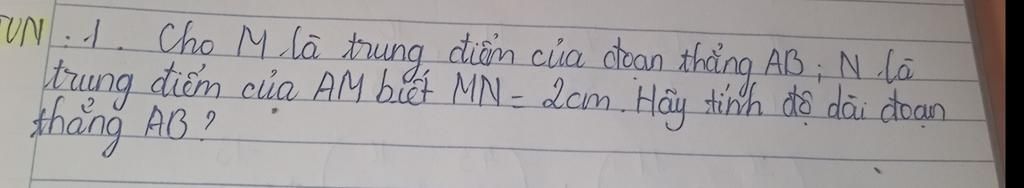 TVN: 1. Cho M là trung điểm của đoạn thẳng AB; N là
trung điểm của AM biết MN = 2cm. Hãy tính độ dài đoạn
thẳng AB?